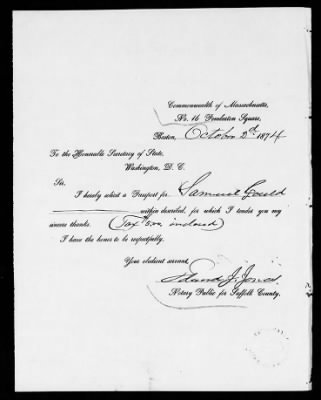 Commonwealth of Massachusetts,
No. 16 Pemberton Square,
Boston, October 2d 1874
To the Honorable Secretary of State,
Washington, D. C.
Sir,
I hereby solicit a Passport for Samuel Gould
within described, for which I tender you my
sincere thanks. (Tax 5.00 inclosed)
I have the honor to be respectfully,
Your obedient servant,
Edward J. Jones
Notary Public for Suffolk County.